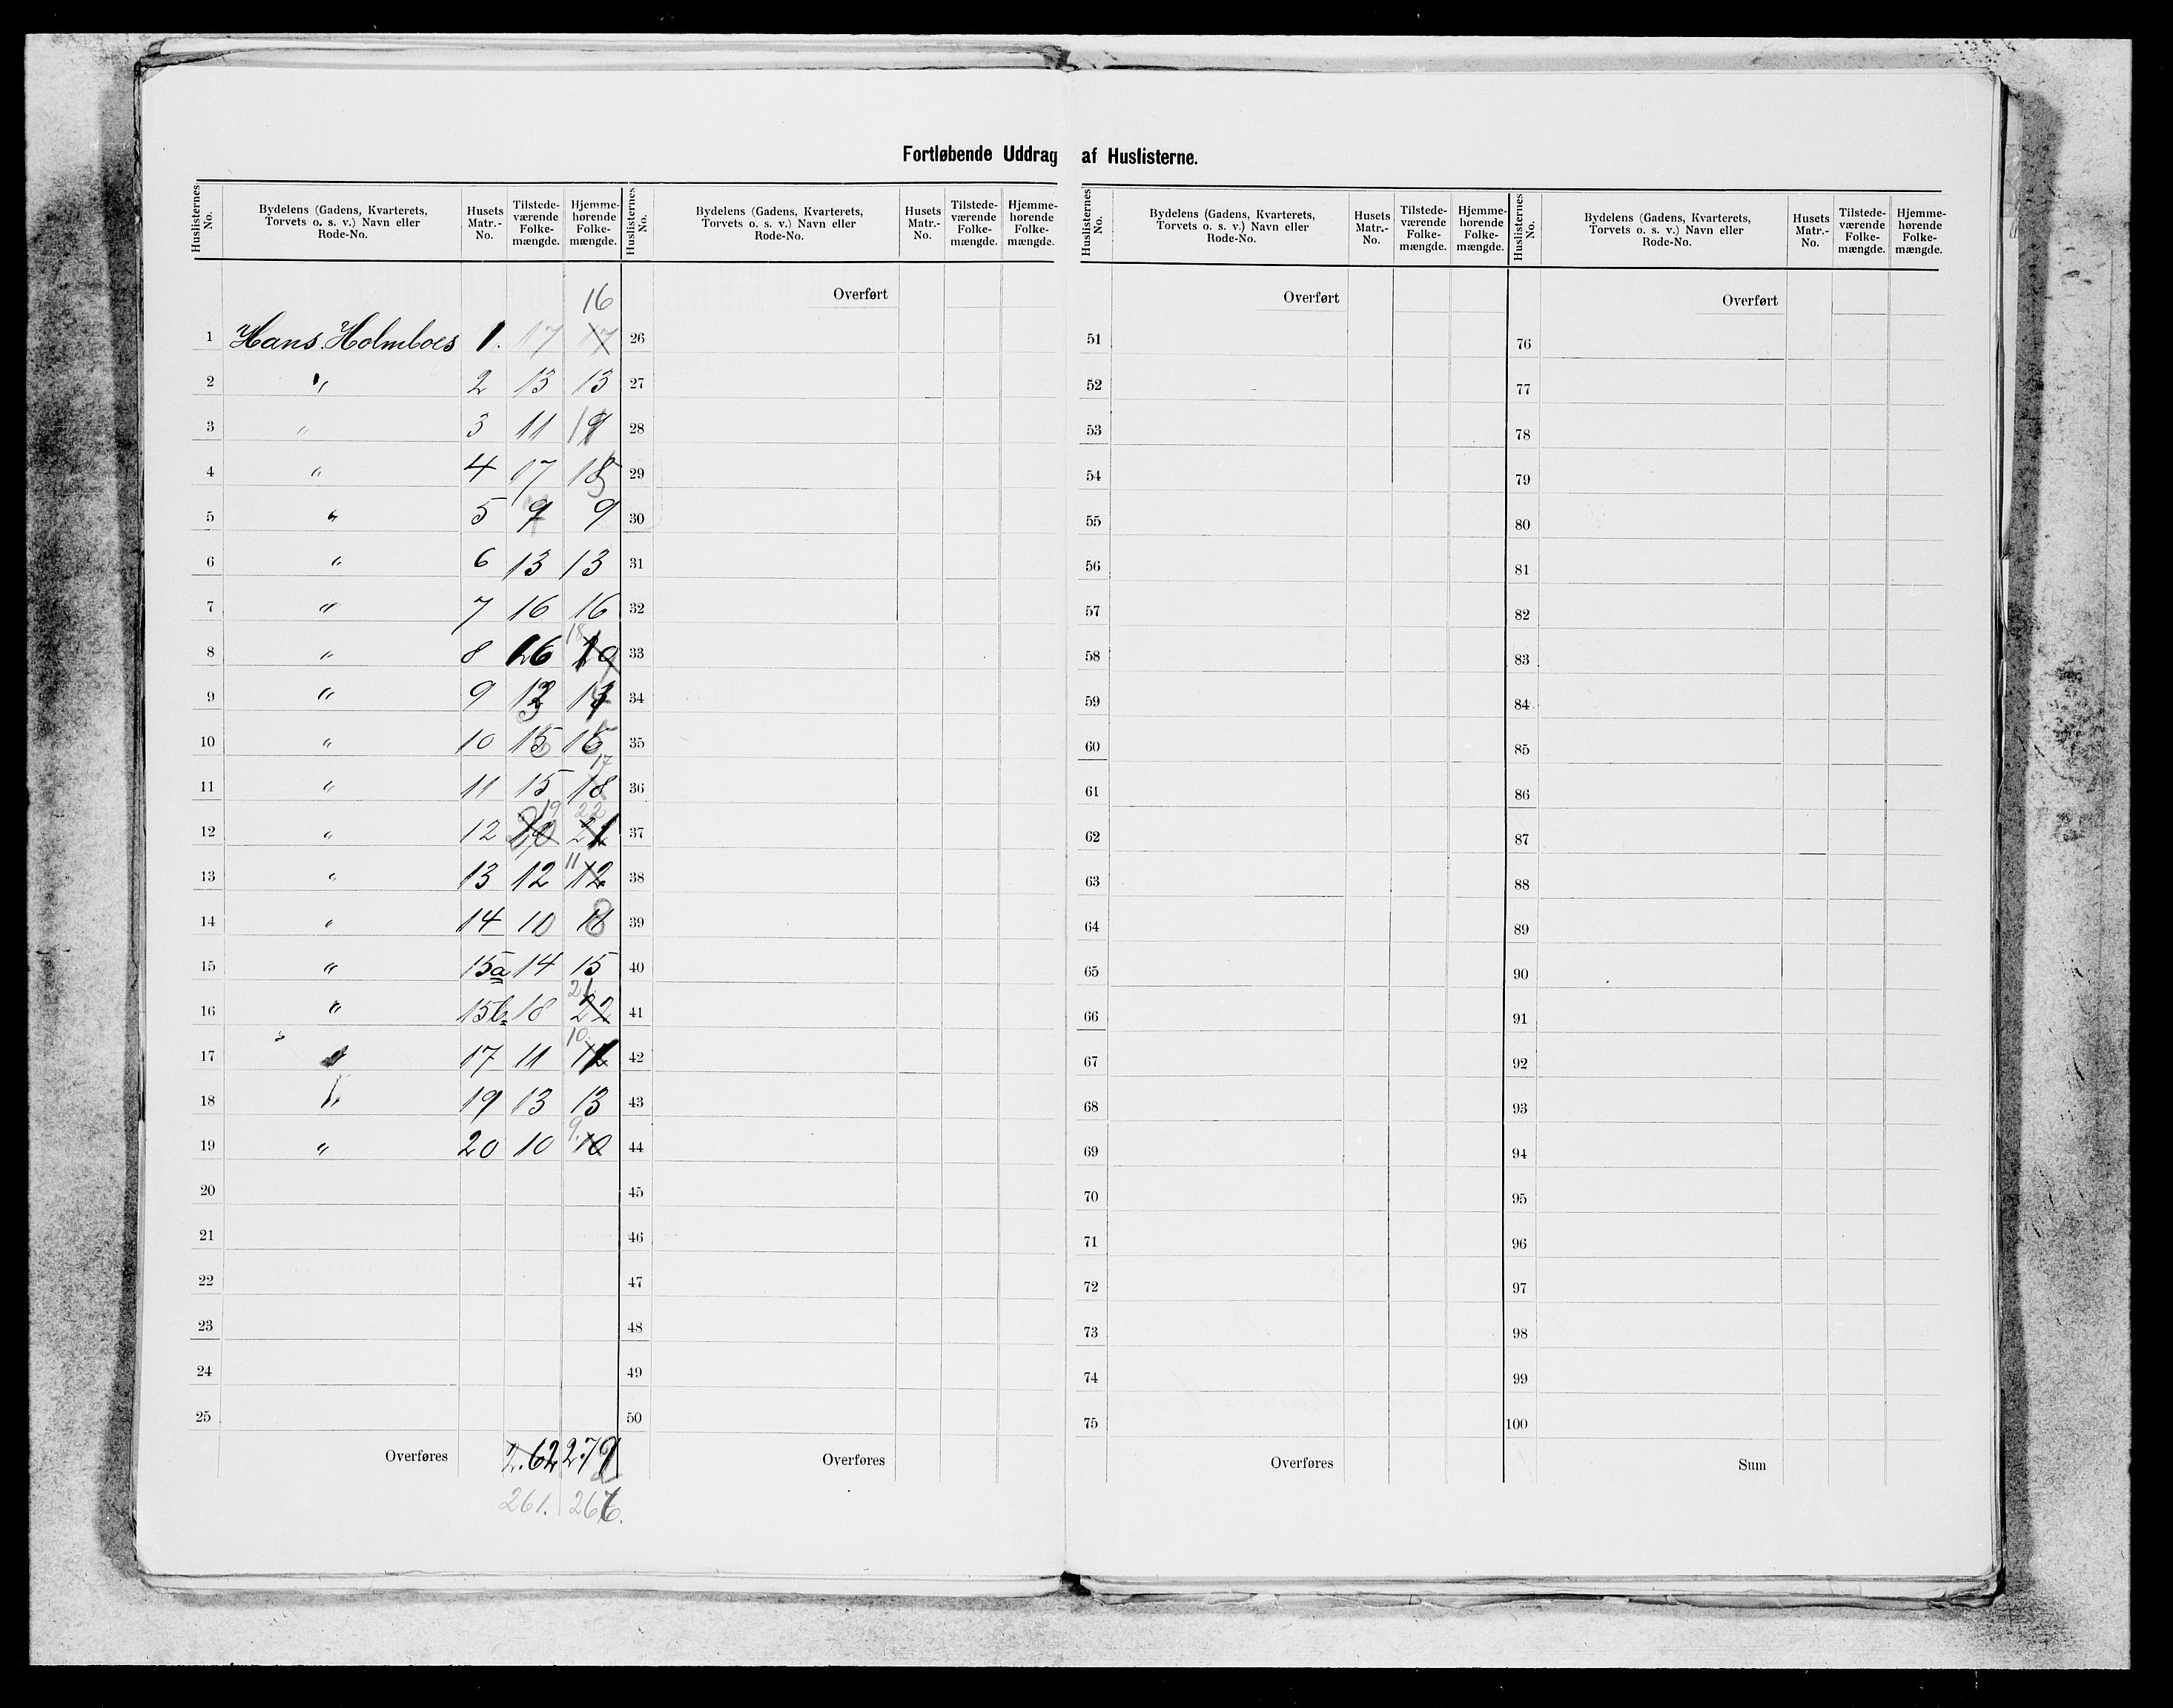 Fortløbende Uddrag af Huslisterne.
Huslisternes No. Bydelens (Gadens, Kvarterets, Torvets o. s. v.) Navn eller Rode-No. Husets Matr.-No. Tilstedeværende Folkemængde. Hjemmehørende Folkemængde.
Huslisternes No. Bydelens (Gadens, Kvarterets, Torvets o. s. v.) Navn eller Rode-No. Husets Matr.-No. Tilstedeværende Folkemængde. Hjemmehørende Folkemængde.
Huslisternes No. Bydelens (Gadens, Kvarterets, Torvets o. s. v.) Navn eller Rode-No. Husets Matr.-No. Tilstedeværende Folkemængde. Hjemmehørende Folkemængde.
Huslisternes No. Bydelens (Gadens, Kvarterets, Torvets o. s. v.) Navn eller Rode-No. Husets Matr.-No. Tilstedeværende Folkemængde. Hjemmehørende Folkemængde.
16 Overført Overført Overført
1 Hans Holmboes 1. 17 17 26 51 76
2 " 2 13 13 27 52 77
3 " 3 11 28 53 78
4 " 4 17 29 54 79
5 " 5 9 9 30 55 80
6 " 6 13 13 31 56 81
7 " 7 16 16 32 57 82
18
8 " 8 16 33 58 83
9 " 9 34 59 84
10 " 10 35 60 85
17
11 " 11 15 18 36 61 86
19 22
12 " 12 37 62 87
11
13 " 13 12 12 38 63 88
14 " 14 10 39 64 89
15 " 15a 14 15 40 65 90
21
16 " 15b 18 22 41 66 91
10
17 " 17 11 42 67 92
18 " 19 13 13 43 68 93
9.
19 " 20 10 10 44 69 94
20 45 70 95
21 46 71 96
22 47 72 97
23 48 73 98
24 49 74 99
25 50 75 100
Overføres 262 Overføres Overføres Sum
261.